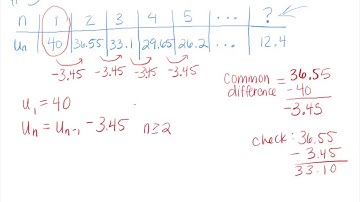 n 1 2 3 4 5 ... ?
Un 40 36.55 33.1 29.65 26.2 ... 12.4
-3.45 -3.45 -3.45 -3.45
U1 = 40
Un = Un-1 -3.45 n≥2
common difference = 36.55
-40
-3.45
check: 36.55
- 3.45
33.10